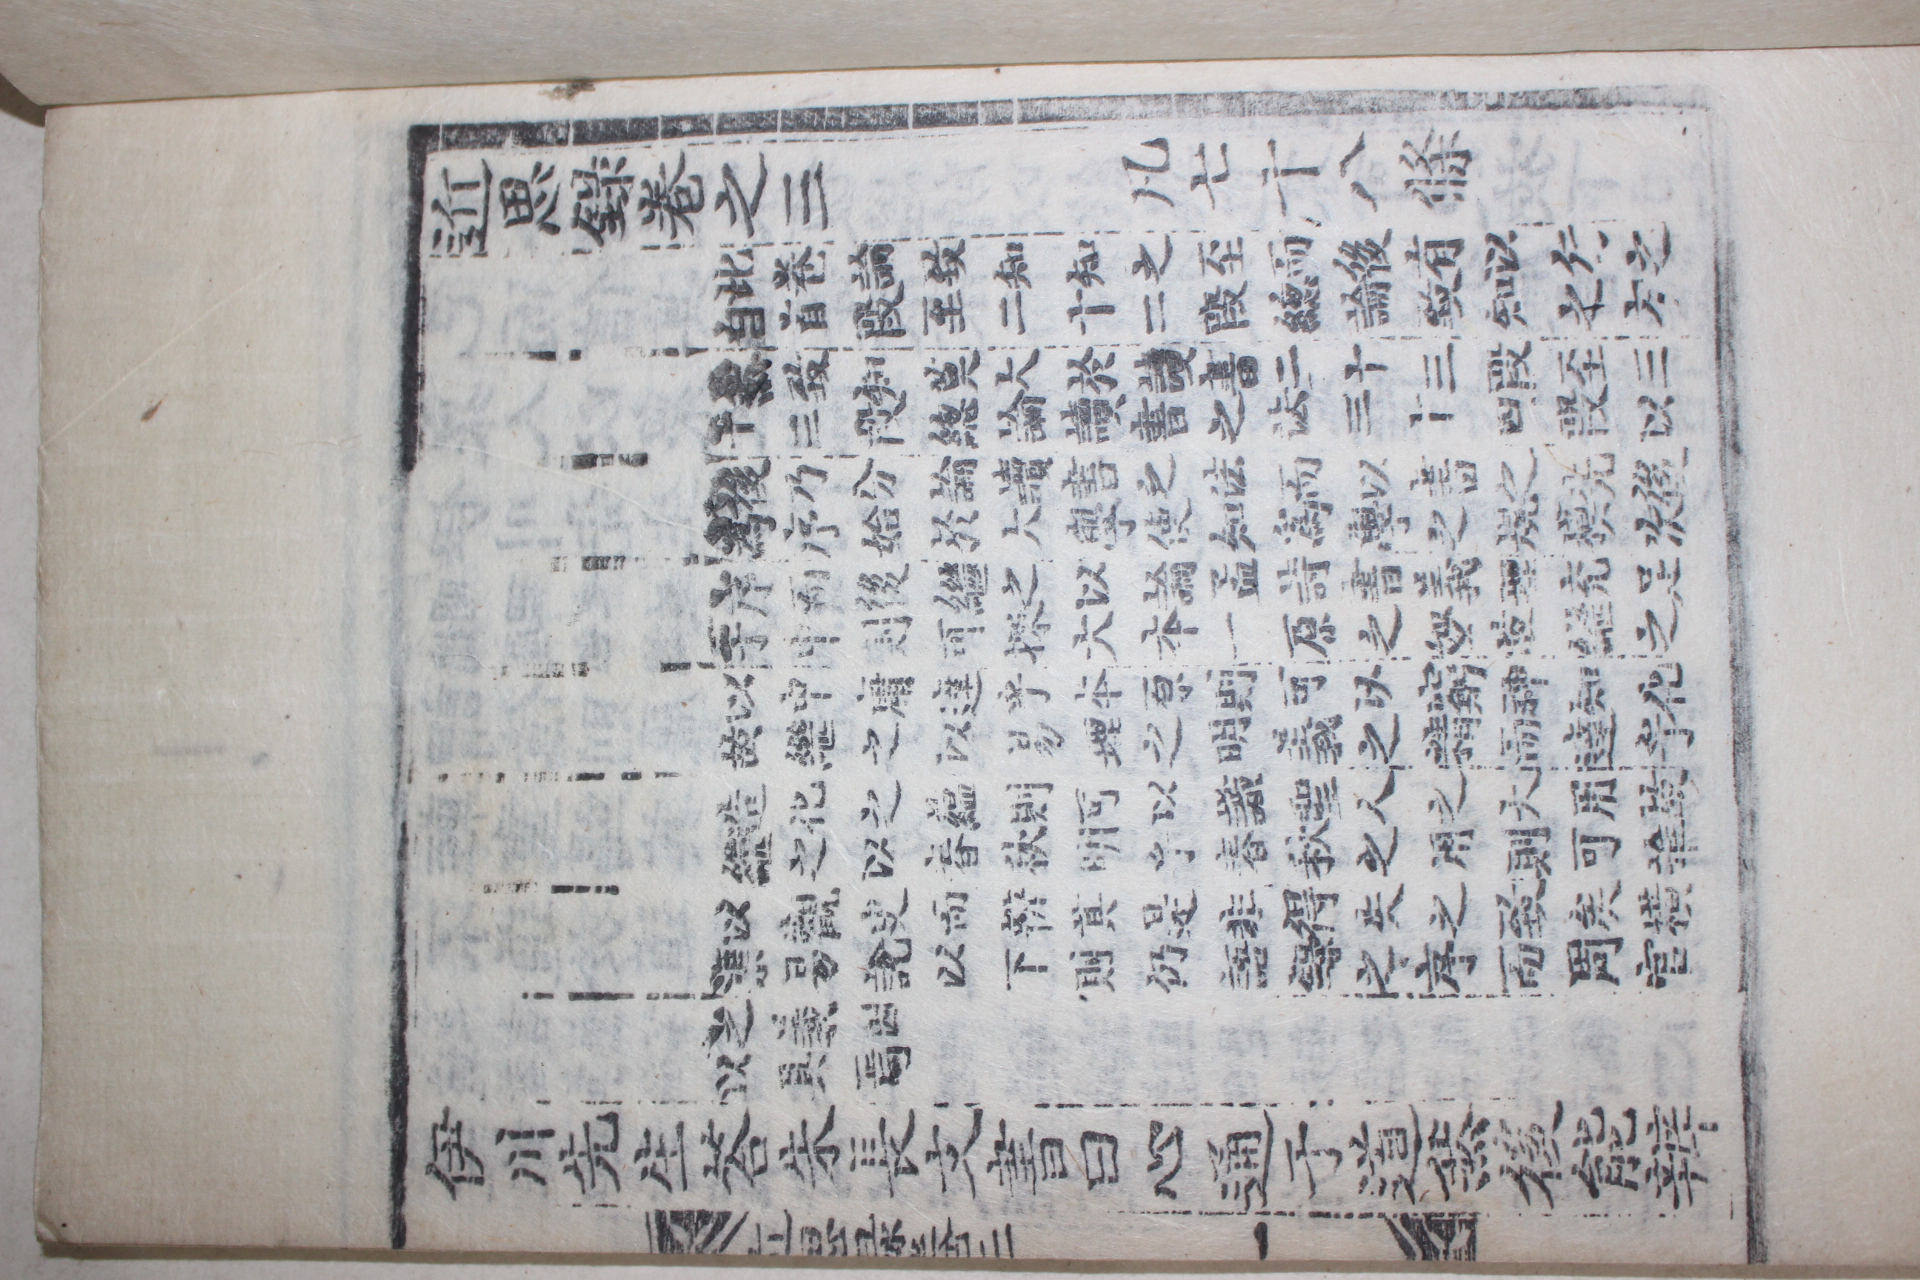 近思錄卷之三　凡七十八條
此卷論致知知之至而後有以行之
自首段至二十二段總論致知之方
然致知莫大於讀書二十三段至三
十三段總論讀書之法三十四段以
後乃分論讀書之法而以書之先後
爲序始於大學使知爲學之規模次
序而後繼之以論孟詩書義理充足
于中則可探大本一原之妙故繼之
以中庸達乎本原則可以窮神知化
故繼之以易理之明義之精而達乎
造化之蘊則可以識聖人之大用故
繼之以春秋明乎春秋之用則可推
以觀史而辨其是非得失之致矣橫
渠易說以下則仍語錄之序而周官
之義因
以具焉
伊川先生荅朱長文書曰心通乎道然後能辨
近思錄卷三
一